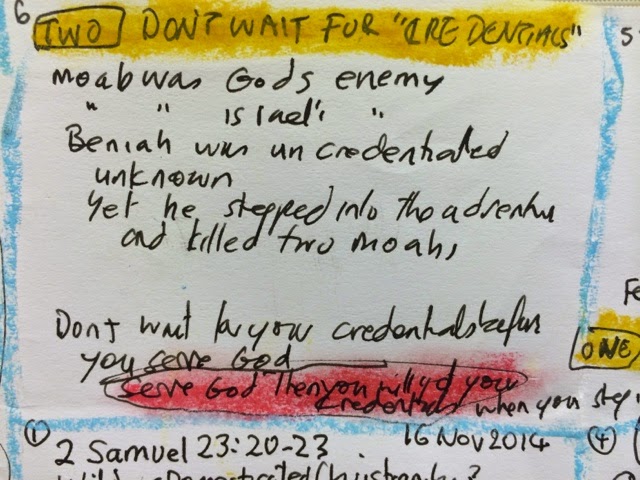 6
TWO DON'T WAIT FOR "CREDENTIALS"
Moab was Gods enemy
" " Israel's "
Beniah was uncredentialed
unknown
Yet he stepped into the adventu
and killed two moabs
Dont wait for your credentials before
you serve God
Serve God Then you will get your
credentials when you step i
① 2 Samuel 23:20-23 16 Nov 2014 ④
Domesticated Christianity?
5
Fe
ONE